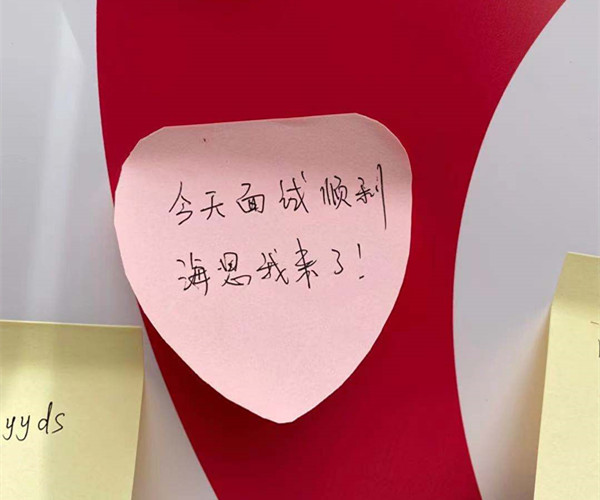 今天面试顺利
海思我来了！
yyds